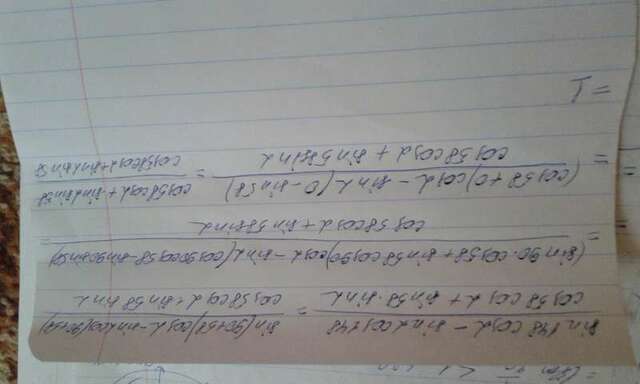 sin148 cosα − sinα cos148 / cos58 cosα + sin58·sinα = sin(90+58)cosα − sinα cos(90+58) / cos58 cosα + sin58 sinα
= (sin90·cos58 + sin58 cos90)cosα − sinα(cos90cos58 − sin90sin58) / cos58cosα + sin58sinα =
= (cos58+0)cosα − sinα(0−sin58) / cos58cosα + sin58sinα = cos58cosα + sinαsin58 / cos58cosα + sinαsin58
= 1